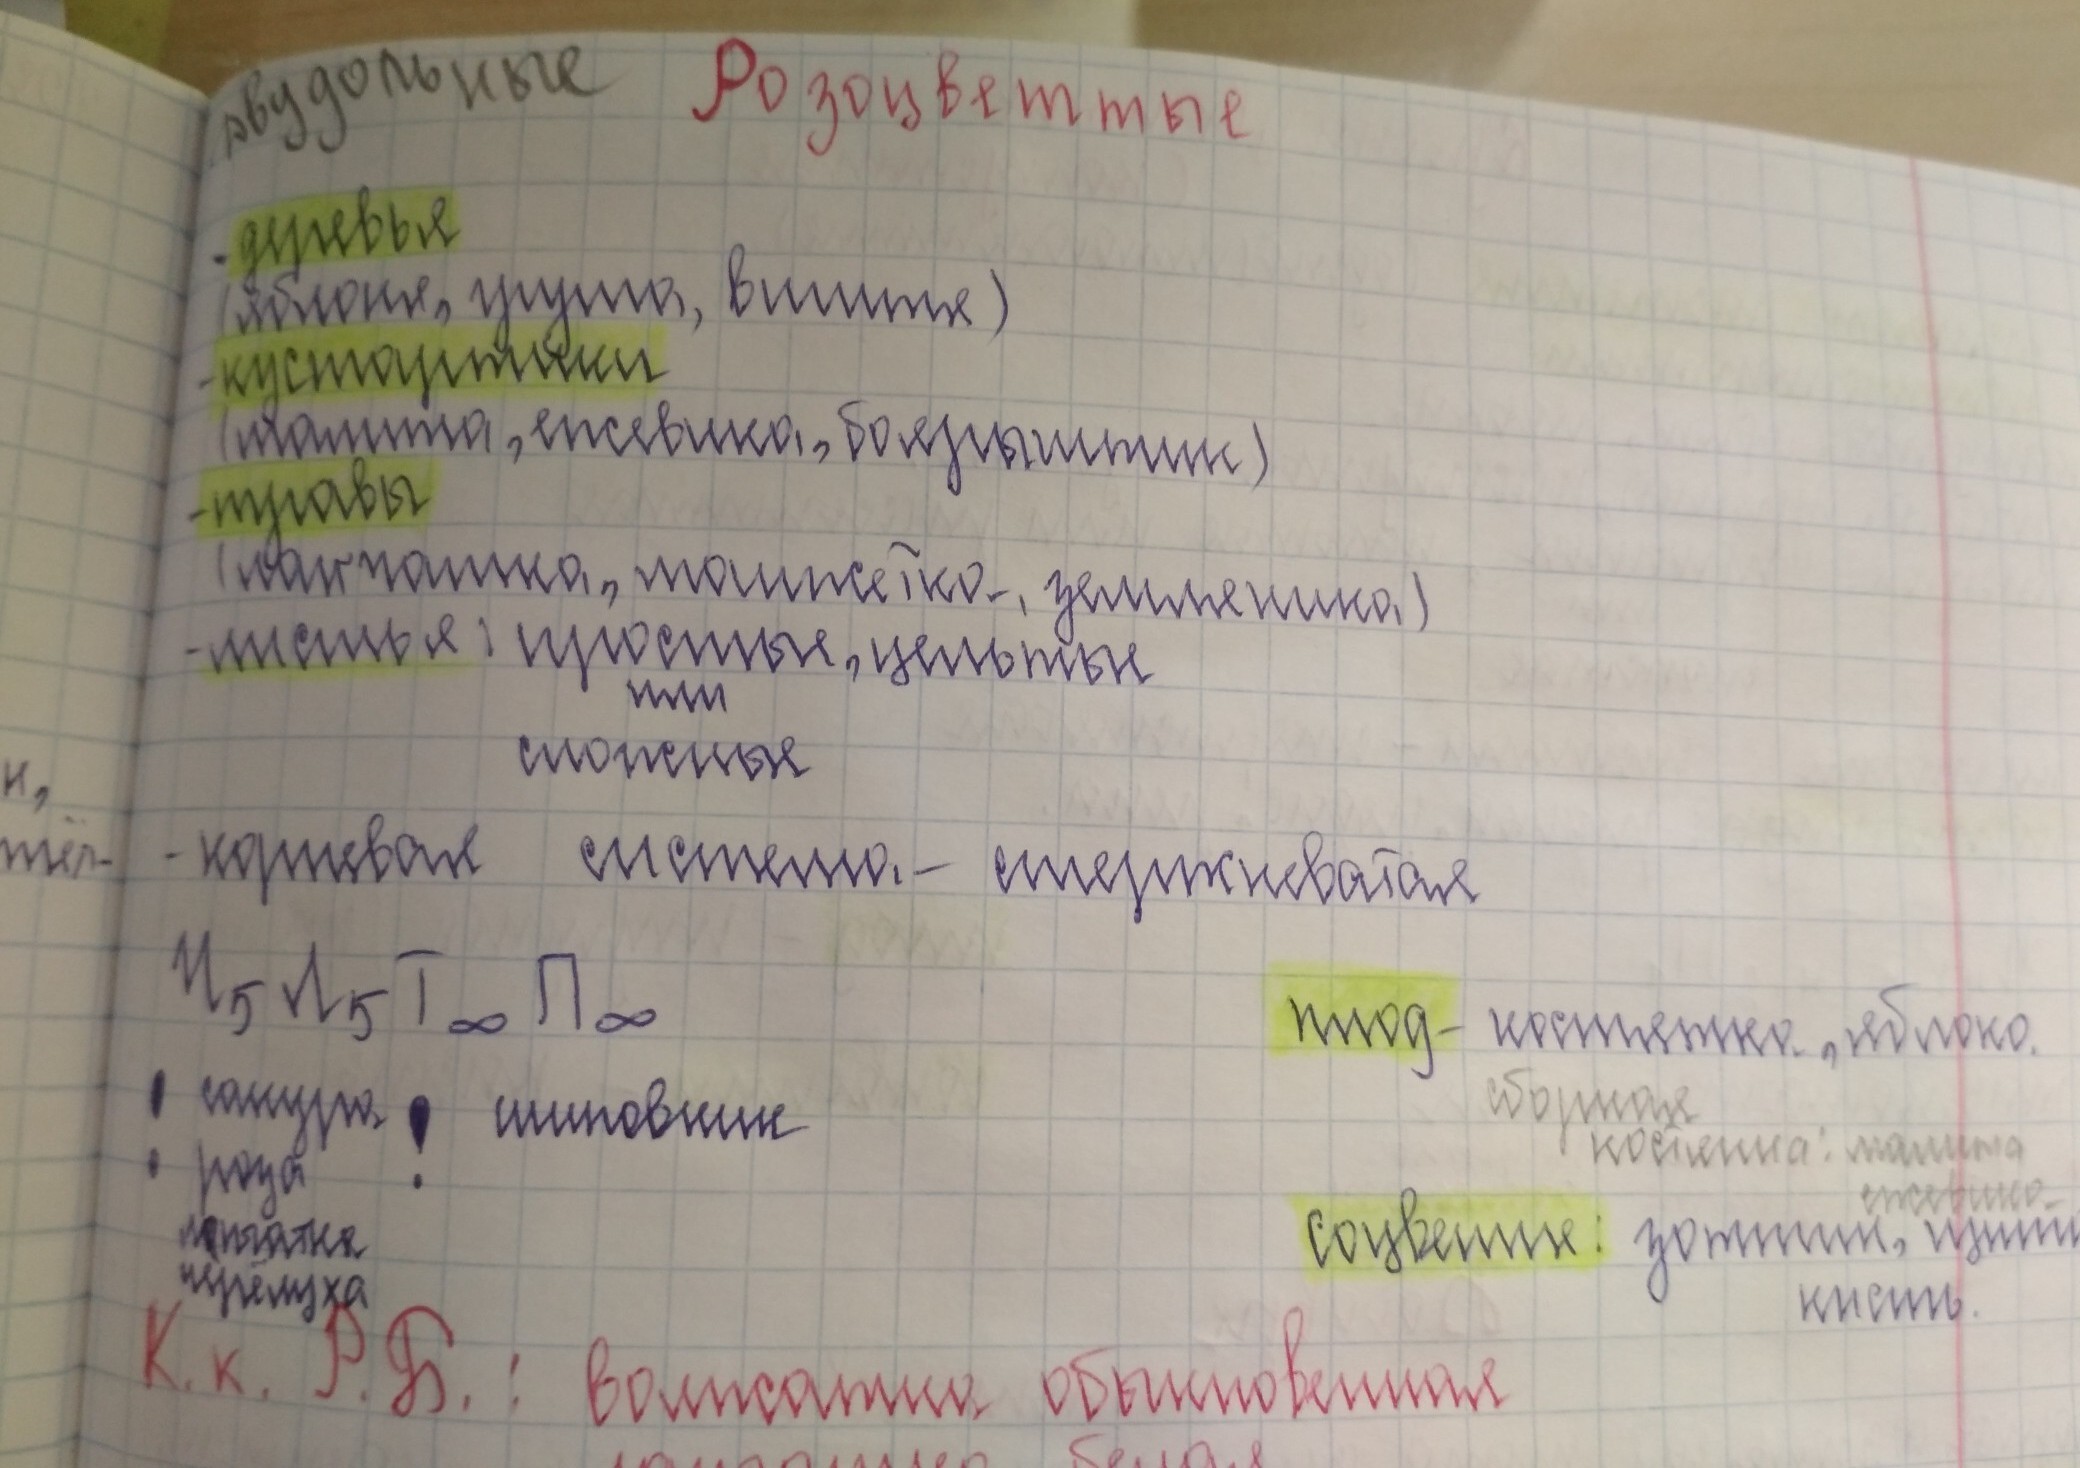 двудольные Розоцветные
- деревья
(яблоня, груша, вишня)
- кустарники
(малина, ежевика, боярышник)
- травы
(лапчатка, манжетка, земляника)
- листья: простые, цельные
или
сложные
- корневая система - стержневатая
Ч5 Л5 Т∞ П∞
плод - костянка, яблоко.
сборная
костянка: малина
ежевика
! сакура ! шиповник
: роза
черёмуха
соцветие: зонтик, щит
кисть.
К.к. Р.Б.: волжанка обыкновенная
лапчатка белая
н,